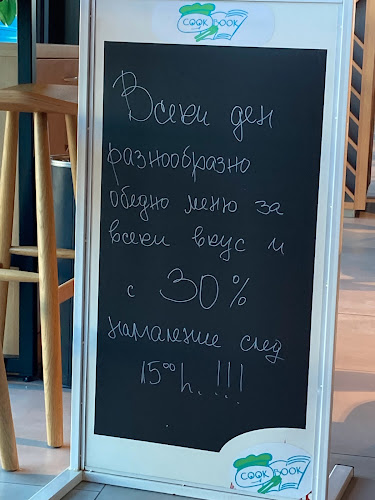 COOK BOOK
Всеки ден
разнообразно
обедно меню за
всеки вкус и
с 30%
намаление след
15⁰⁰h. !!!
COOK BOOK